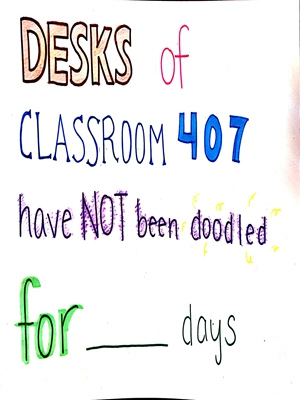 DESKS of
CLASSROOM 407
have NOT been doodled
for ____ days